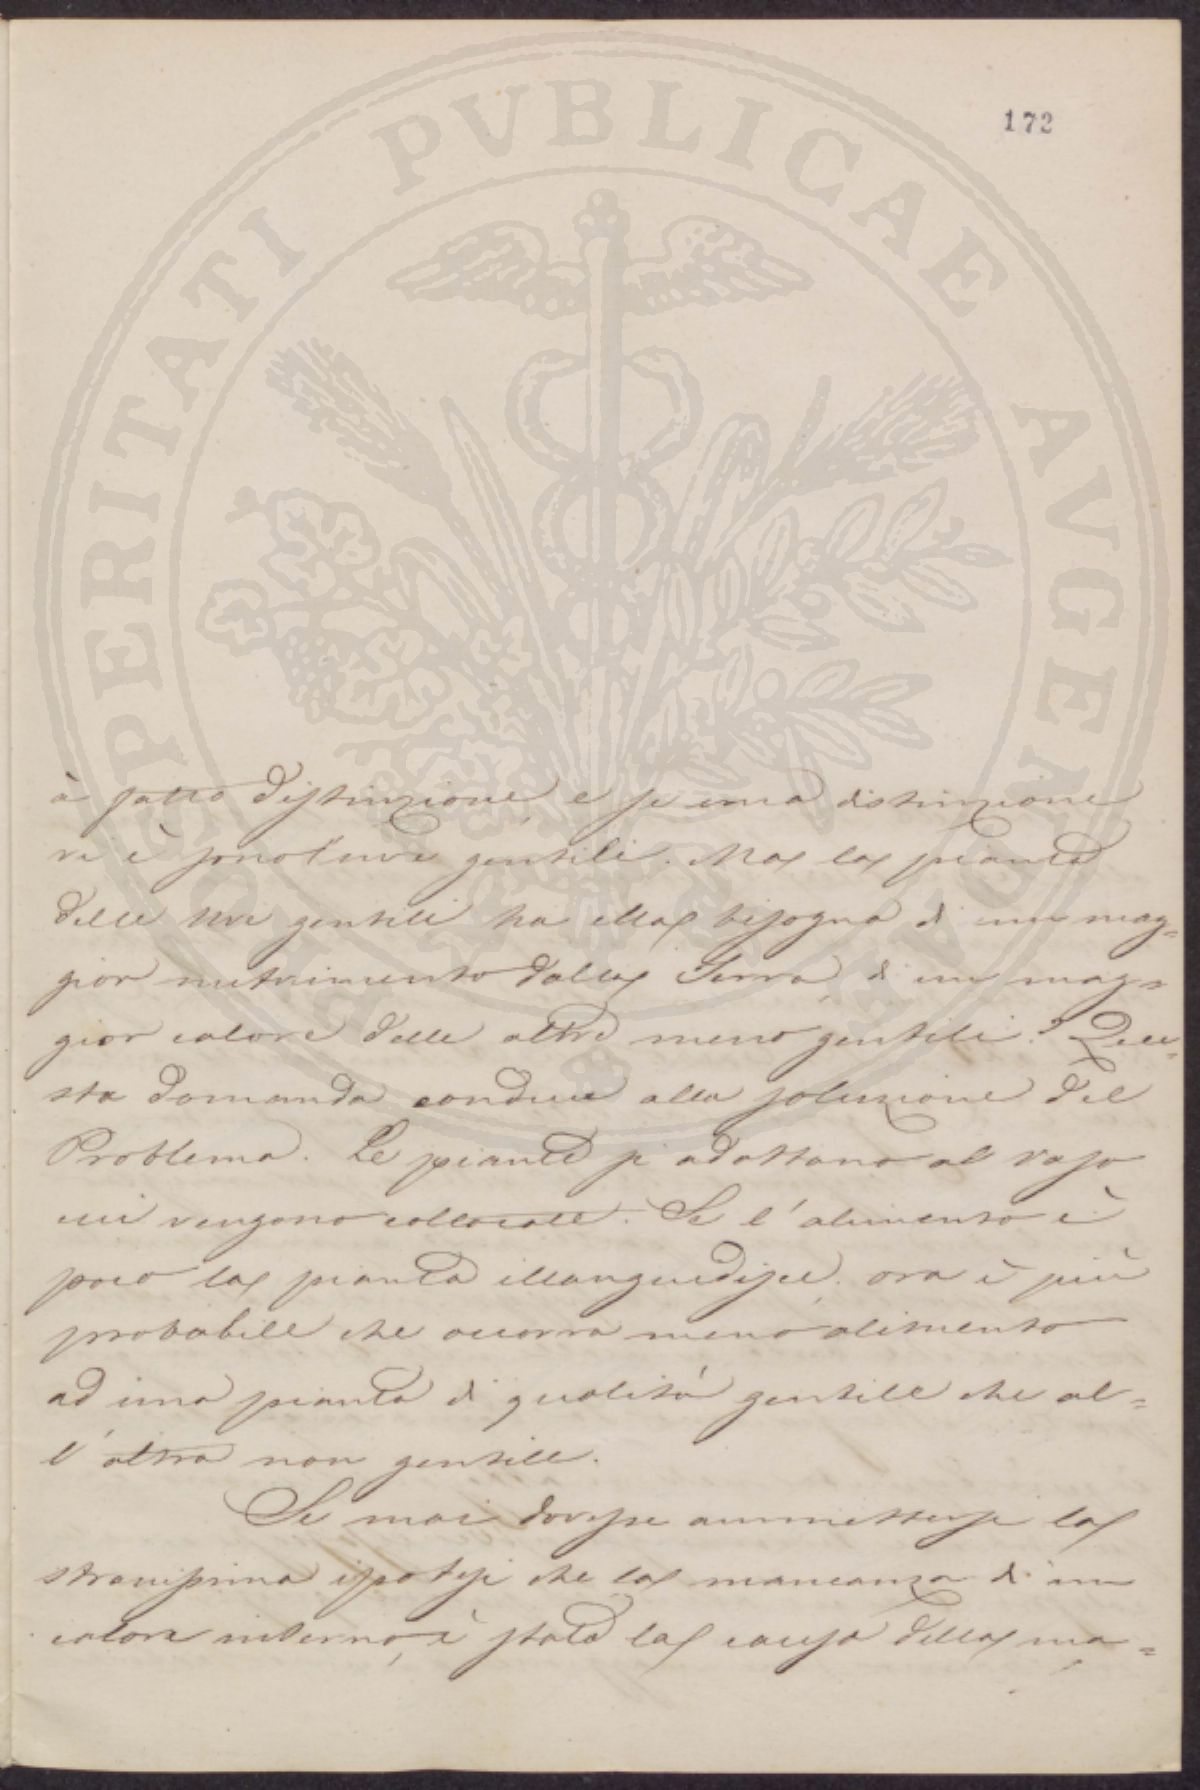 172
à fatto distinzione, e se una distinzione
vi è sono l'uve gentili. Ma la pianta
delle Uve gentili ha ella bisogno di un mag=
gior nutrimento dalla Terra, di un mag=
gior calore delle altre meno gentili? Que=
sta domanda conduce alla soluzione del
Problema. Le piante si adattano al vaso
cui vengono collocate. Se l'alimento è
poco la pianta illanguidisce, ora è più
probabile che occorra meno alimento
ad una pianta di qualità gentile che al=
l'altra non gentile.
Se mai dovesse ammettersi la
stranissima ipotesi che la mancanza di un
calore interno, è stata la causa della ma=
PROSPERITATI PVBLICAE AVGENDAE